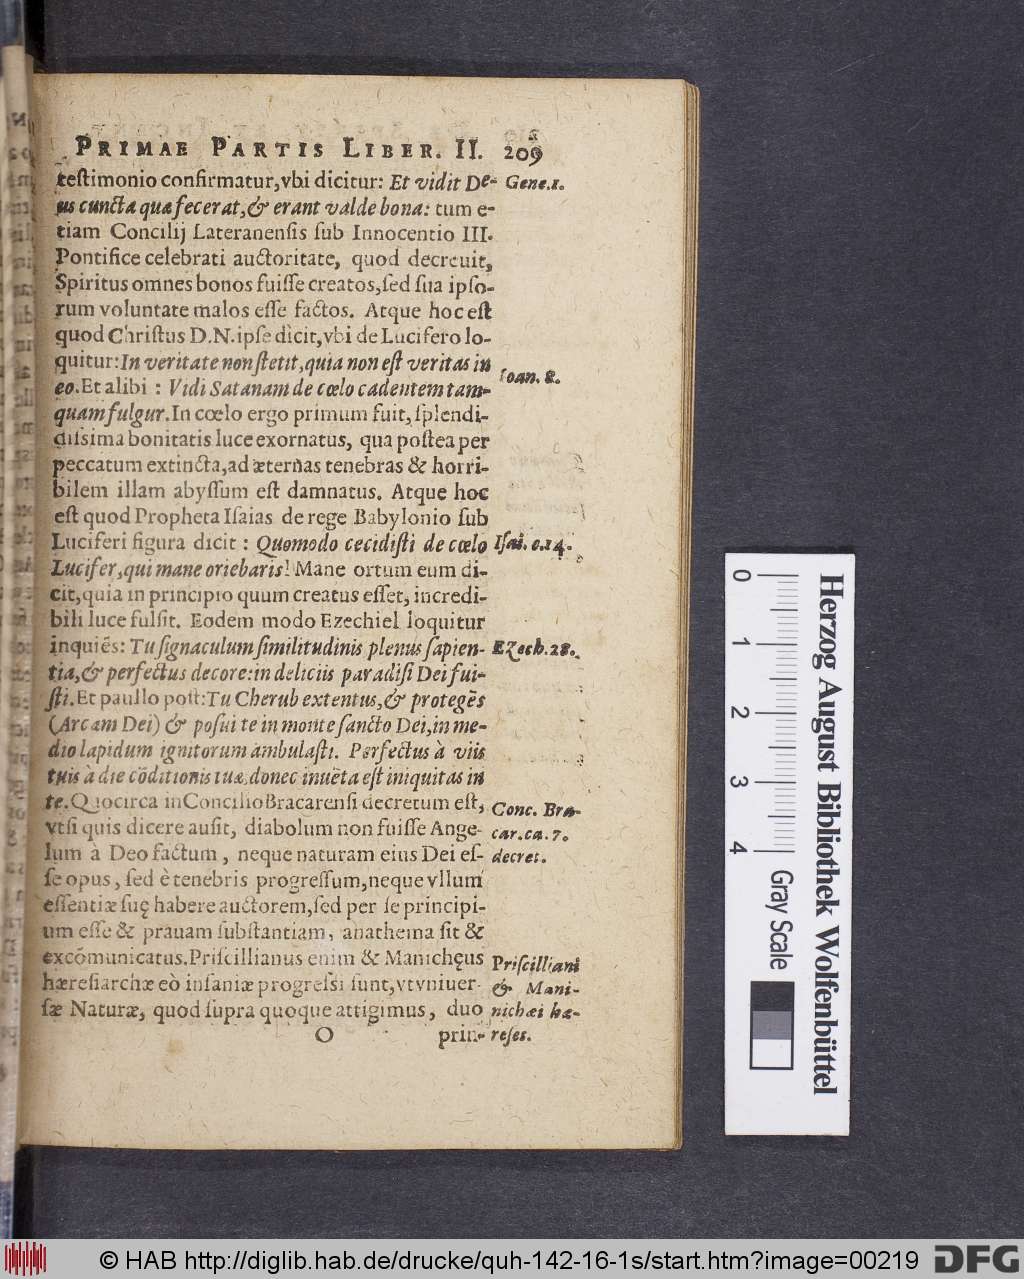 PRIMAE PARTIS LIBER. II. 209
testimonio confirmatur, vbi dicitur: Et vidit De- Gene.1.
us cuncta quæ fecerat, & erant valde bona: tum e-
tiam Concilij Lateranensis sub Innocentio III.
Pontifice celebrati auctoritate, quod decreuit,
Spiritus omnes bonos fuisse creatos, sed sua ipso-
rum voluntate malos esse factos. Atque hoc est
quod Christus D.N. ipse dicit, vbi de Lucifero lo-
quitur: In veritate non stetit, quia non est veritas in
eo. Et alibi : Vidi Satanam de cœlo cadentem tam- Ioan. 8.
quam fulgur. In cœlo ergo primum fuit, splendi-
dissima bonitatis luce exornatus, qua postea per
peccatum extincta, ad æternas tenebras & horri-
bilem illam abyssum est damnatus. Atque hoc
est quod Propheta Isaias de rege Babylonio sub
Luciferi figura dicit : Quomodo cecidisti de cœlo Isai. c.14.
Lucifer, qui mane oriebaris! Mane ortum eum di-
cit, quia in principio quum creatus esset, incredi-
bili luce fulsit. Eodem modo Ezechiel loquitur
inquiēs: Tu signaculum similitudinis plenus sapien- Ezech.28.
tia, & perfectus decore: in deliciis paradisi Dei fui-
sti. Et paullo post: Tu Cherub extentus, & protegēs
(Arcam Dei) & posui te in monte sancto Dei, in me-
dio lapidum ignitorum ambulasti. Perfectus à viis
tuis à die cōditionis tuæ, donec inuēta est iniquitas in
te. Quocirca in Concilio Bracarensi decretum est, Conc. Bra-
vt si quis dicere ausit, diabolum non fuisse Ange- car.ca.7.
lum à Deo factum , neque naturam eius Dei es- decret.
se opus, sed è tenebris progressum, neque vllum
essentiæ suę habere auctorem, sed per se principi-
um esse & prauam substantiam, anathema sit &
excōmunicatus. Priscillianus enim & Manichęus Priscilliani
hæresiarchæ eò insaniæ progressi sunt, vt vniuer- & Mani-
sæ Naturæ, quod supra quoque attigimus, duo nichæi hæ-
O prin- reses.
Herzog August Bibliothek Wolfenbüttel
0 1 2 3 4 Gray Scale
© HAB http://diglib.hab.de/drucke/quh-142-16-1s/start.htm?image=00219 DFG